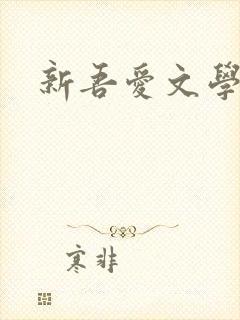 新吾爱文學
寒非